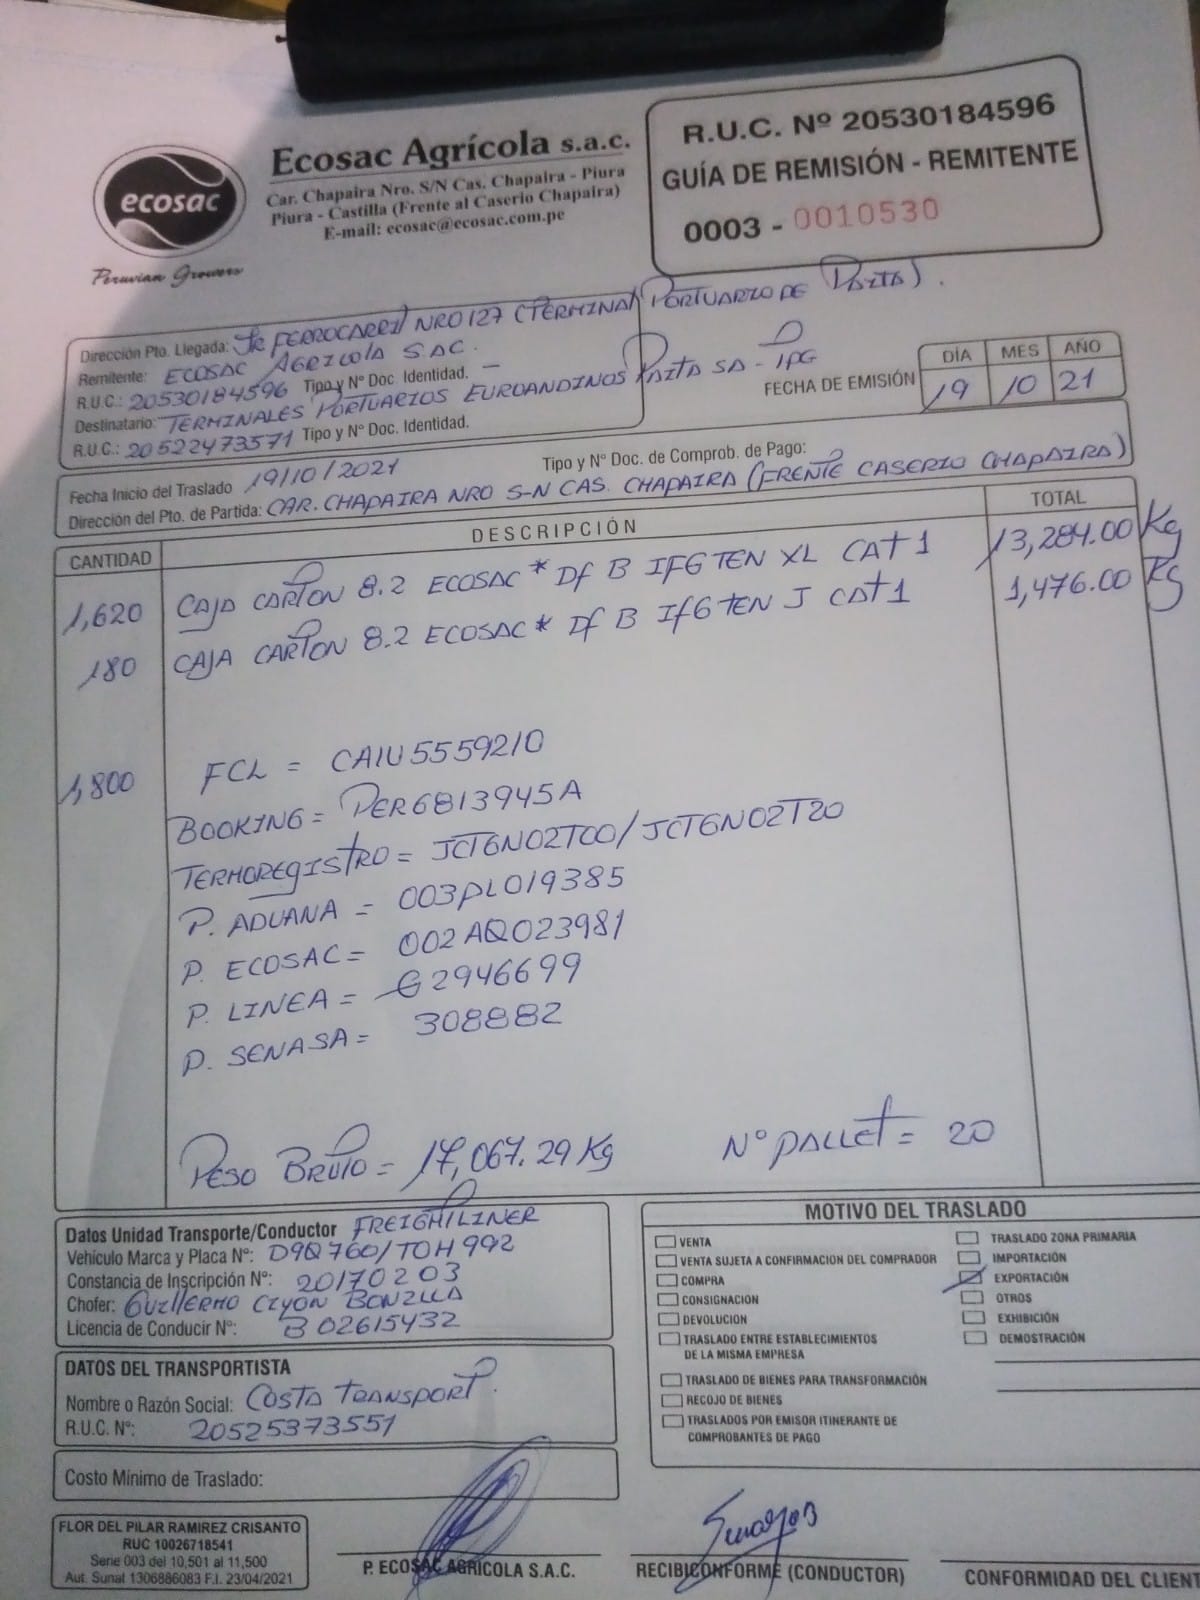 ecosac
Peruvian Growers
Ecosac Agrícola s.a.c.
Car. Chapaira Nro. S/N Cas. Chapaira - Piura
Piura - Castilla (Frente al Caserio Chapaira)
E-mail: ecosac@ecosac.com.pe
R.U.C. Nº 20530184596
GUÍA DE REMISIÓN - REMITENTE
0003 - 0010530
Dirección Pto. Llegada: JR FERROCARRIL NRO 127 (TERMINAL PORTUARIO DE PAITA).
Remitente: ECOSAC AGRICOLA SAC.
R.U.C.: 20530184596 Tipo y Nº Doc. Identidad. —
Destinatario: TERMINALES PORTUARIOS EUROANDINOS PAITA SA - TPG
R.U.C.: 20522473571 Tipo y Nº Doc. Identidad.
FECHA DE EMISIÓN
DÍA MES AÑO
19 10 21
Fecha Inicio del Traslado 19/10/2021 Tipo y Nº Doc. de Comprob. de Pago:
Dirección del Pto. de Partida: CAR. CHAPAIRA NRO S-N CAS. CHAPAIRA (FRENTE CASERIO CHAPAIRA)
CANTIDAD DESCRIPCIÓN TOTAL
1,620 CAJA CARTON 8.2 ECOSAC * Df B IFG TEN XL CAT 1 13,284.00 Kg
180 CAJA CARTON 8.2 ECOSAC * Df B IfG TEN J CAT 1 1,476.00 Kg
1,800 FCL = CAIU5559210
BOOKING = PER6813945A
TERMOREGISTRO = JCT6N02T00/JCT6N02T20
P. ADUANA = 003PL019385
P. ECOSAC = 002AQ023981
P. LINEA = G2946699
P. SENASA = 308882
PESO BRUTO = 17,067.29 Kg Nº PALLET = 20
Datos Unidad Transporte/Conductor FREIGHTLINER
Vehículo Marca y Placa Nº: D9Q760/TOH992
Constancia de Inscripción Nº: 20170203
Chofer: GUILLERMO CEYON BONILLA
Licencia de Conducir Nº: B02615432
DATOS DEL TRANSPORTISTA
Nombre o Razón Social: COSTA TRANSPORT.
R.U.C. Nº: 20525373551
Costo Mínimo de Traslado:
MOTIVO DEL TRASLADO
VENTA
VENTA SUJETA A CONFIRMACION DEL COMPRADOR
COMPRA
CONSIGNACION
DEVOLUCION
TRASLADO ENTRE ESTABLECIMIENTOS
DE LA MISMA EMPRESA
TRASLADO DE BIENES PARA TRANSFORMACIÓN
RECOJO DE BIENES
TRASLADOS POR EMISOR ITINERANTE DE
COMPROBANTES DE PAGO
TRASLADO ZONA PRIMARIA
IMPORTACIÓN
EXPORTACIÓN
OTROS
EXHIBICIÓN
DEMOSTRACIÓN
FLOR DEL PILAR RAMIREZ CRISANTO
RUC 10026718541
Serie 003 del 10,501 al 11,500
Aut. Sunat 1306886083 F.I. 23/04/2021
P. ECOSAC AGRICOLA S.A.C.
RECIBI CONFORME (CONDUCTOR)
CONFORMIDAD DEL CLIENT